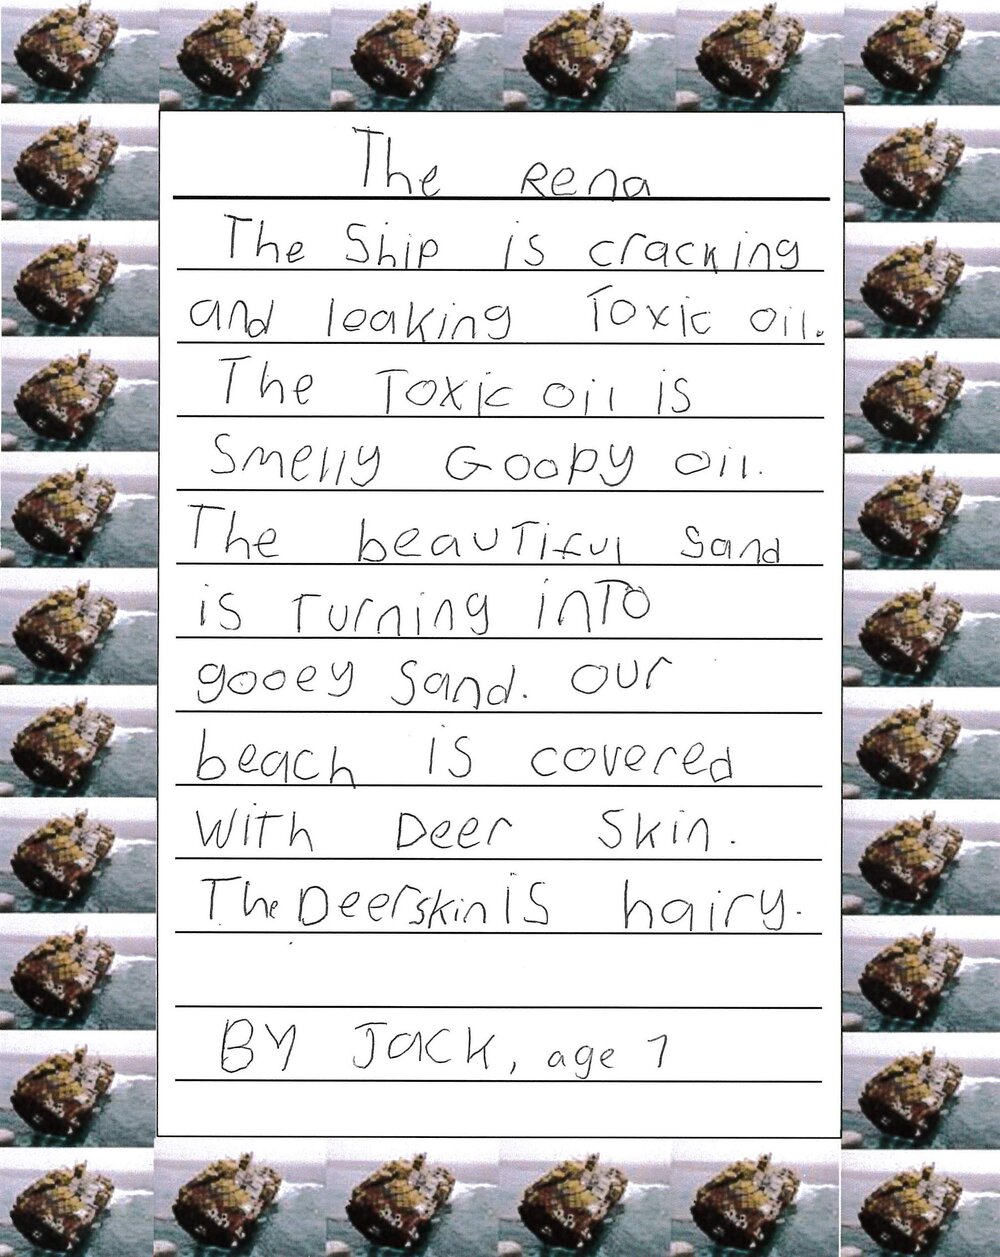 The Rena
The Ship is cracking
and leaking Toxic oil.
The Toxic oil is
Smelly Goopy oil.
The beautiful Sand
is Turning into
gooey Sand. Our
beach is covered
With Deer Skin.
The Deerskin is hairy.
By Jack, age 7